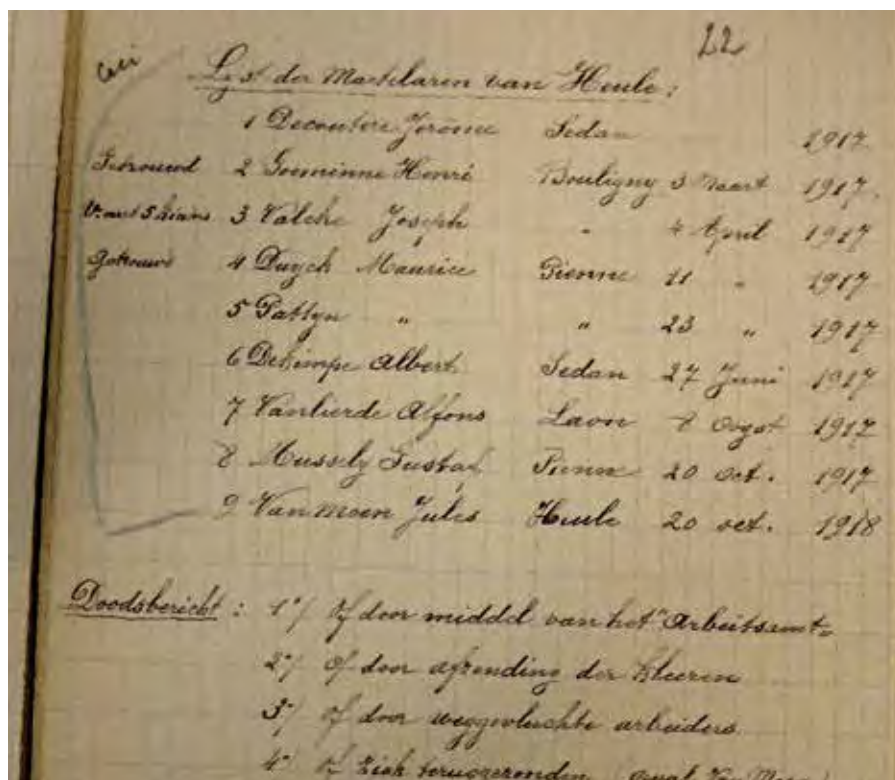 22
Lyst der Martelaren van Heule :
1 Decoutere Jerôme Sedan 1917
Getrouwd 2 Goeminne Henri Bouligny 3 Maart 1917.
3 Valcke Joseph " 4 April 1917
Getrouwd 4 Duyck Maurice Pienne 11 " 1917
5 Pattyn " " 23 " 1917
6 Dekimpe Albert Sedan 27 Juni 1917
7 Vanlierde Alfons Laon 8 Oogst 1917
8 Mussely Gustaf Pienne 20 oct. 1917
9 Van Moen Jules Heule 20 oct. 1918
Doodsbericht : 1°/ Of door middel van het "Arbeitsamt"
2°/ Of door afzending der kleeren
3°/ Of door weggevluchte arbeiders
4° Of ziek teruggezonden